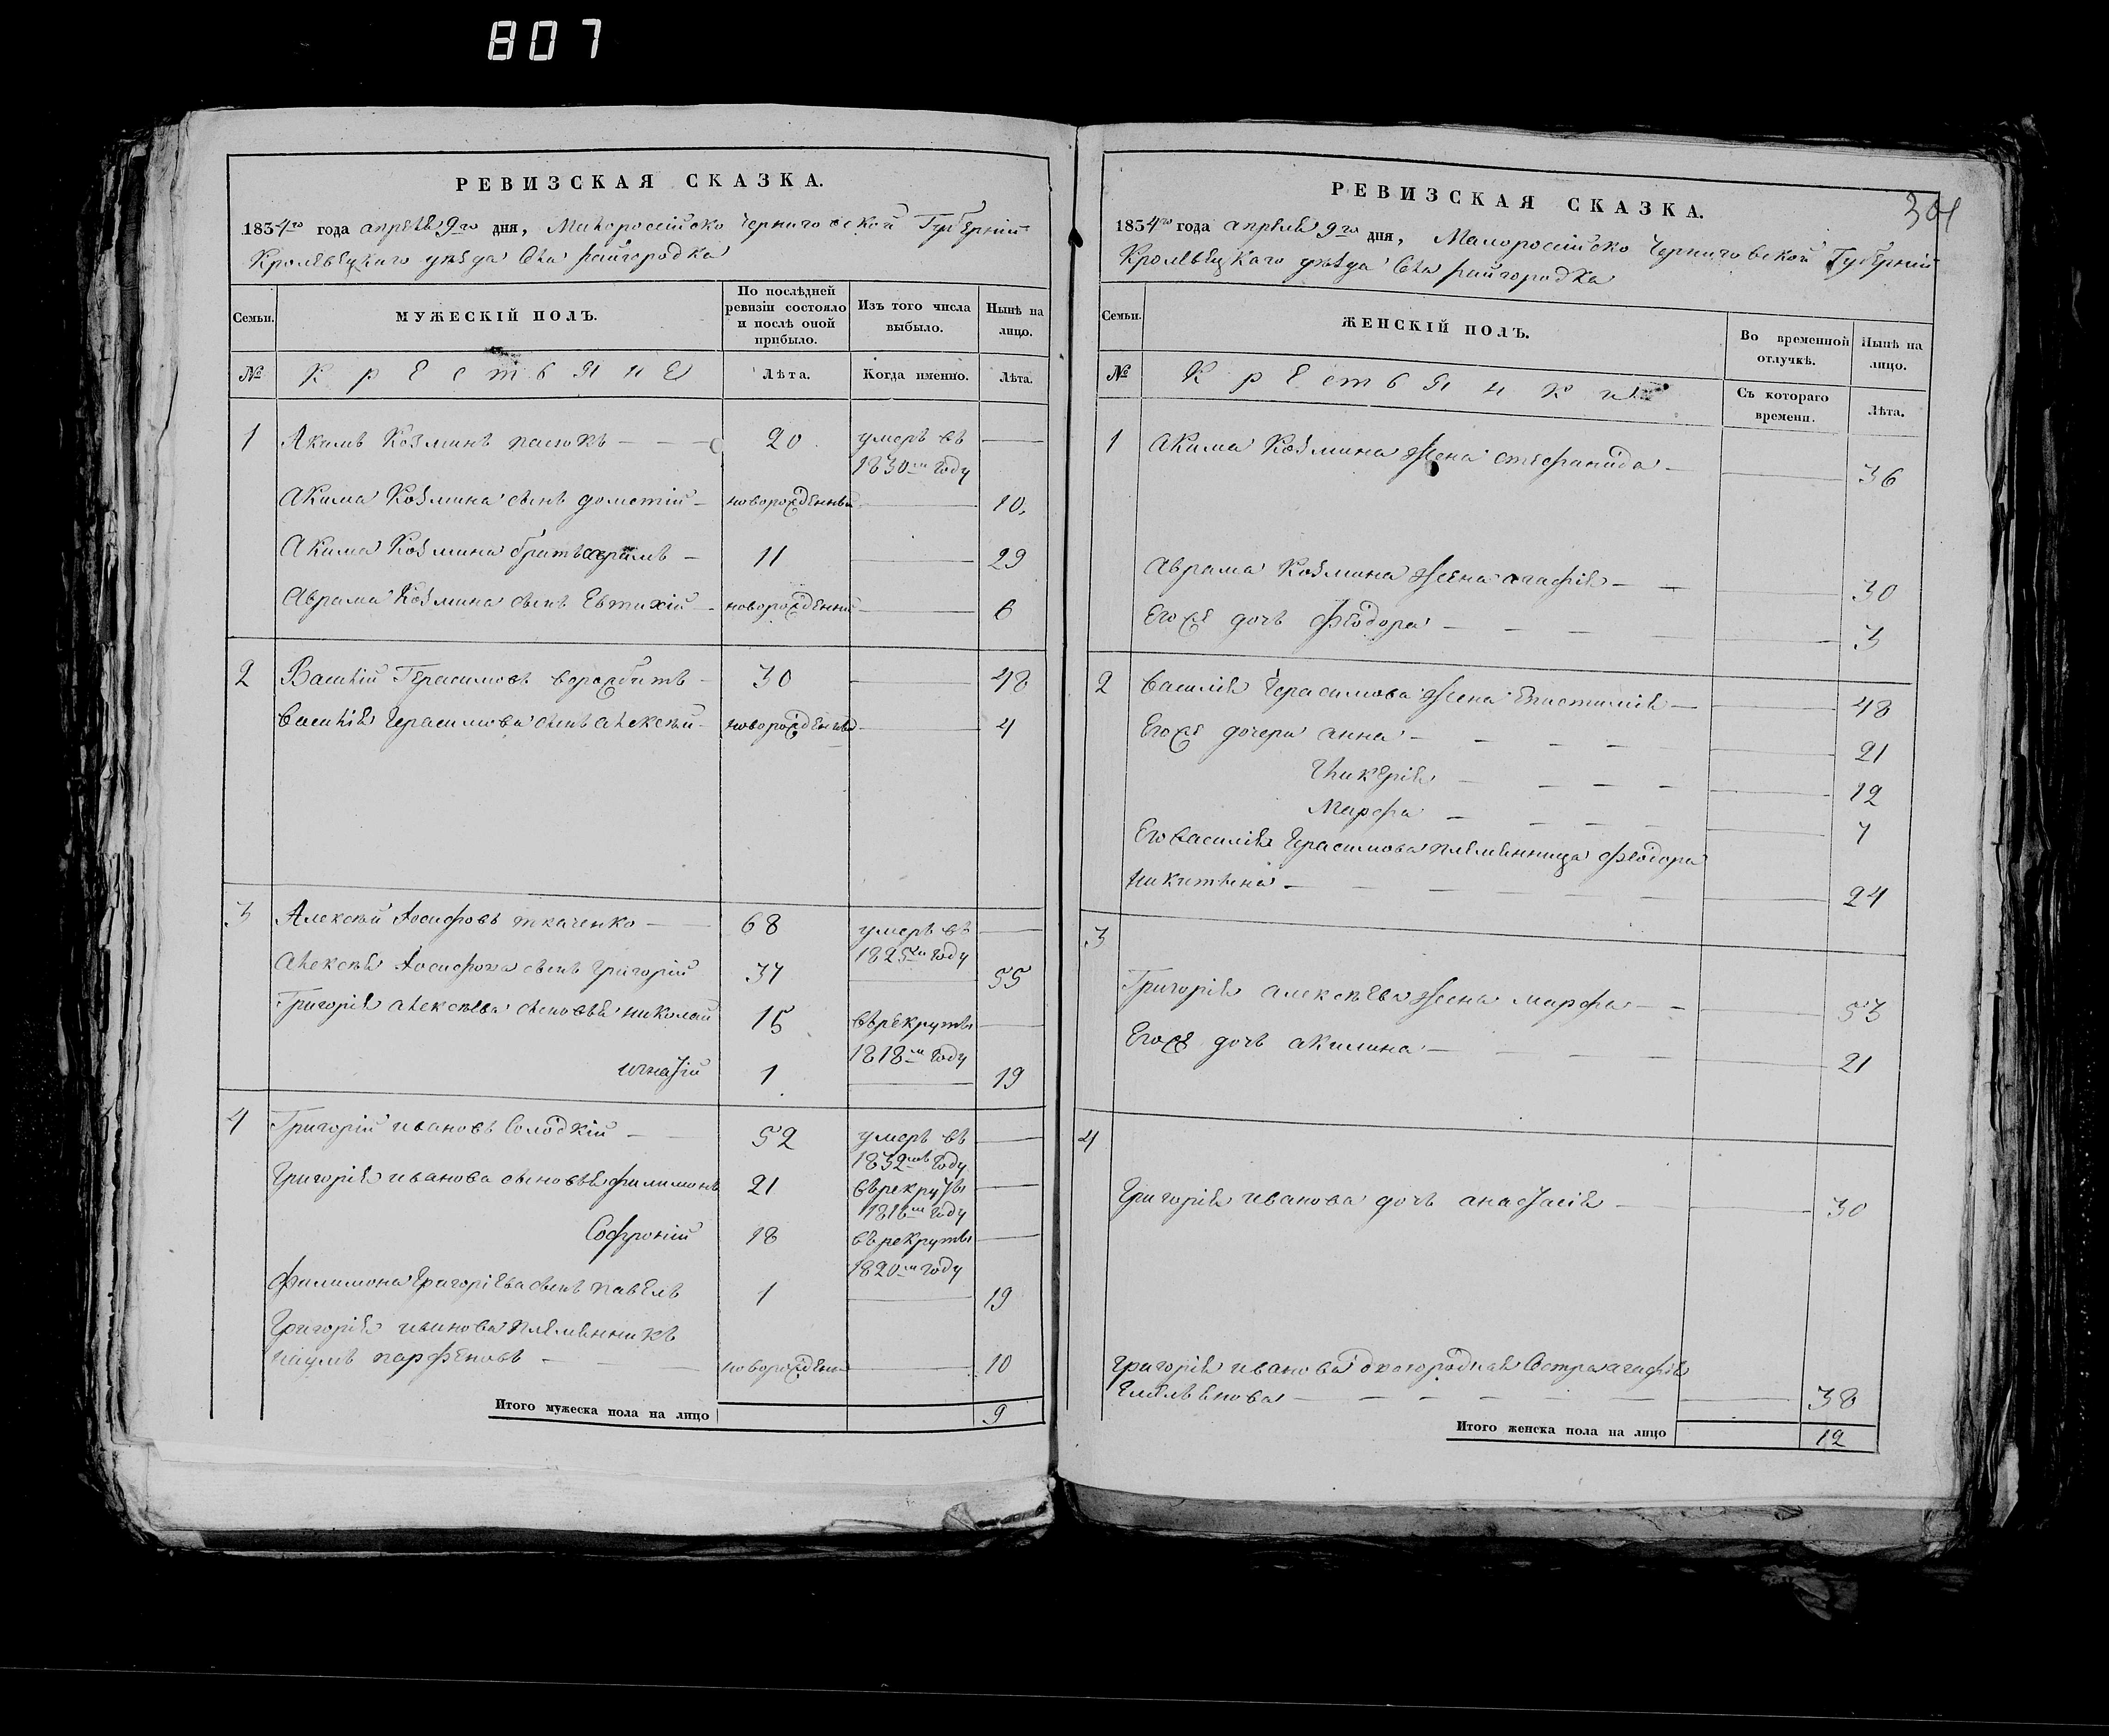 807
РЕВИЗСКАЯ СКАЗКА.
1834го года апрѣля 9го дня, Малоросiйско Черниговской Губернiи
Кролевецкаго уѣзда Села райгородка
Семьи.
МУЖЕСКІЙ ПОЛЪ.
По послѣдней ревизіи состояло и послѣ оной прибыло.
Изъ того числа выбыло.
Нынѣ на лицо.
№
Крестьяне
Лѣта.
Когда именно.
Лѣта.
1 Акимъ Козминъ 20 умеръ въ
1830м году
Акима Козмина сынъ дометiй новорожденный 10.
Акима Козмина братъ аврамъ 11 29
Аврама Козмина сынъ Евтихiй новорожденный 6
2 Василiй Герасимовъ ворожбитъ 30 48
Василiя Герасимова сынъ алексѣй новорожденный 4
3 Алексѣй Іосифовъ ткаченко 68 умеръ въ
1825м году
Алексѣя Іосифова сынъ Григорiй 37 55
Григорiя алексѣева сыновья николай 15 въ рекруты
1818м году
игнатiй 1 19
4 Григорiй ивановъ Солодкiй 52 умеръ въ
1832мъ году
Григорiя иванова сыновья филимонъ 21 въ рекруты
1818м году
Софронiй 18 въ рекруты
1820м году
филимона григорiева сынъ павелъ 1 19
Григорiя иванова племянникъ
наумъ парфеновъ новорожден 10
Итого мужеска пола на лицо 9
РЕВИЗСКАЯ СКАЗКА.
301
1834го года апрѣля 9го дня, Малоросiйско Черниговской Губернiи
Кролевецкаго уѣзда Села райгородка
Семьи.
ЖЕНСКІЙ ПОЛЪ.
Во временной отлучкѣ.
Нынѣ на лицо.
№
Крестьянки
Съ котораго времени.
Лѣта.
1 Акима Козмина жена стефанида 36
Аврама Козмина жена агафiя 30
Егоже дочь феодора 3
2 Василiя Герасимова жена Епистимiя 48
Егоже дочери анна 21
Гликерiя 12
Марфа 7
Его Василiя Герасимова племянница феодора
никитина 24
3
Григорiя алексѣева жена марфа 53
Егоже дочь акилина 21
4
Григорiя иванова дочь анастасiя 30
Григорiя иванова двоюродная Сестра агафiя
Емельянова 38
Итого женска пола на лицо 12